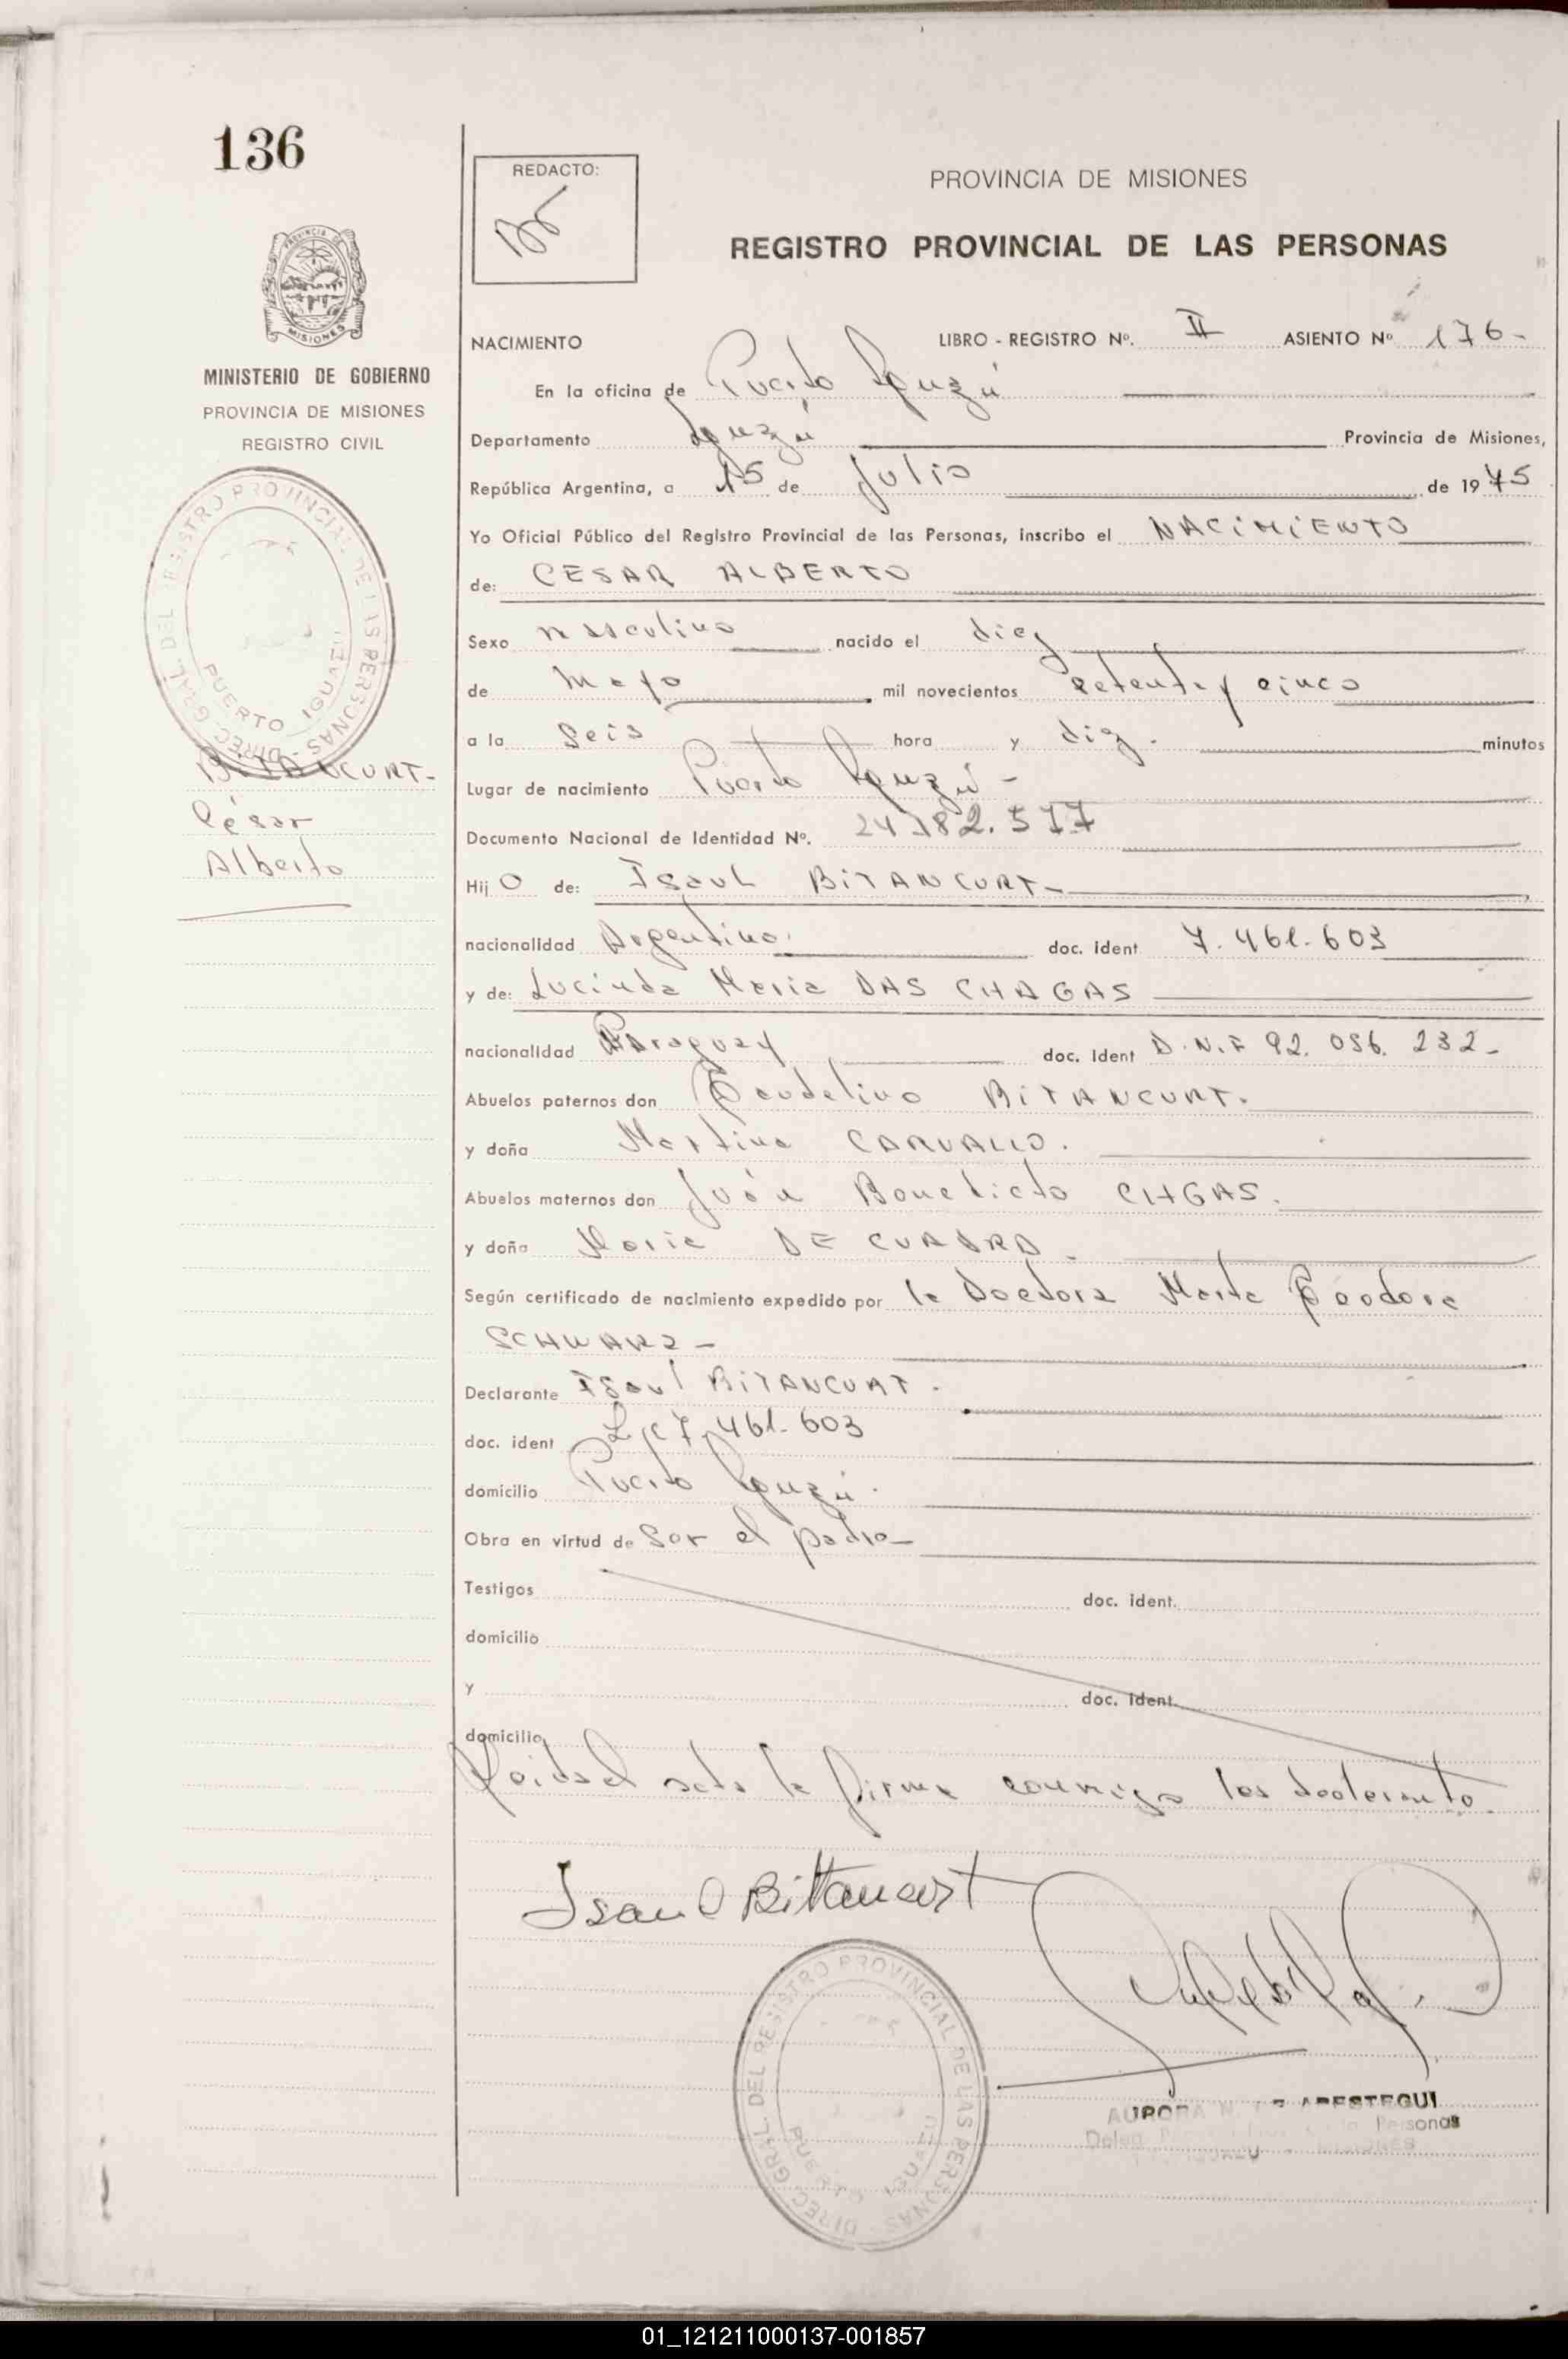 136
PROVINCIA DE
MISIONES
MINISTERIO DE GOBIERNO
PROVINCIA DE MISIONES
REGISTRO CIVIL
DIREC. GRAL. DEL REGISTRO PROVINCIAL DE LAS PERSONAS
PUERTO IGUAZU
BITANCURT-
César
Alberto
REDACTO:
PROVINCIA DE MISIONES
REGISTRO PROVINCIAL DE LAS PERSONAS
NACIMIENTO LIBRO - REGISTRO Nº. II ASIENTO Nº 176-
En la oficina de Puerto Iguazú
Departamento Iguazú Provincia de Misiones,
República Argentina, a 15 de Julio de 1975
Yo Oficial Público del Registro Provincial de las Personas, inscribo el NACIMIENTO
de: CESAR ALBERTO
Sexo masculino nacido el diez
de Mayo mil novecientos setenta y cinco
a la Seis hora y diez. minutos
Lugar de nacimiento Puerto Iguazú-
Documento Nacional de Identidad Nº. 24.182.577
Hij O de: Isaul BITANCURT-
nacionalidad Argentino. doc. ident 7.461.603
y de: Lucinda Maria DAS CHAGAS
nacionalidad Paraguay doc. Ident D.N.I 92.056.232-
Abuelos paternos don BITANCURT.
y doña Martina CARVALLO.
Abuelos maternos don Juán Benedicto CHGAS.
y doña Maria DE CUADRA-
Según certificado de nacimiento expedido por la Doctora Marta Teodora
SCHWARZ-
Declarante Isaul BITANCURT.
doc. ident 7.461.603
domicilio Puerto Iguazú.
Obra en virtud de Ser el padre-
Testigos doc. ident.
domicilio
y doc. ident.
domicilio
Leida el acta la firma conmigo los declarante.
Isaul Bittancurt
DIREC. GRAL. DEL REGISTRO PROVINCIAL DE LAS PERSONAS
PUERTO IGUAZU
AURORA ARESTEGUI
Personas